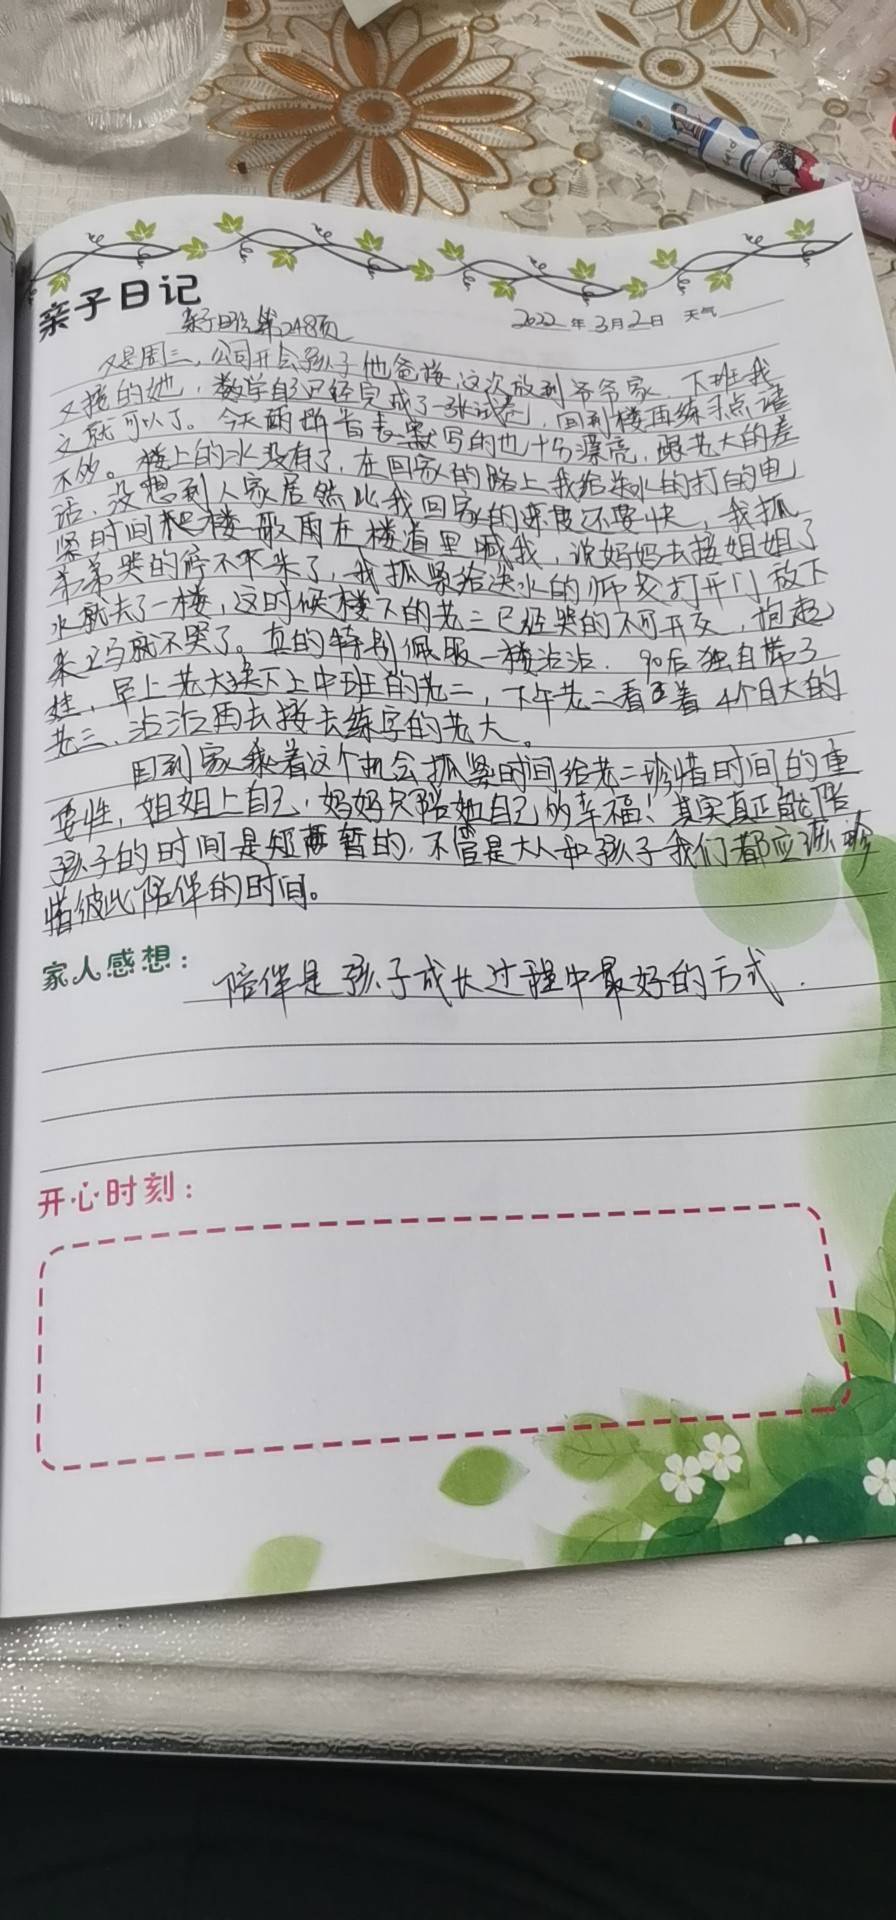 亲子日记
亲子日记第248页
2022年3月2日 天气
又是周三,公司开会孩子他爸接,这次放到爷爷家,下班我
又接的她,数学自己已经完成了一张试卷,回到楼再练习点语
文就可以了。今天的拼音表默写的也十分漂亮,跟老大的差
不多。楼上的水没有了,在回家的路上我给送水的打的电
话,没想到人家居然比我回家的速度还要快,我抓
紧时间爬楼 雨在楼道里喊我,说妈妈去接姐姐了
弟弟哭的停不下来了,我抓紧给送水的师傅打开门放下
水就去了一楼,这时候楼下的老三已经哭的不可开交,抱起
来立马就不哭了。真的特别佩服一楼沾沾.90后独自带3
娃,早上老大 下上中班的老二,下午老二看着4个月大的
老三,沾沾再去接去练字的老大。
回到家乘着这个机会抓紧时间给老二珍惜时间的重
要性,姐姐上自习,妈妈只陪她自己的幸福!其实真正能陪
孩子的时间是短暂的,不管是大人和孩子我们都应该珍
惜彼此陪伴的时间。
家人感想:
陪伴是孩子成长过程中最好的方式.
开心时刻: